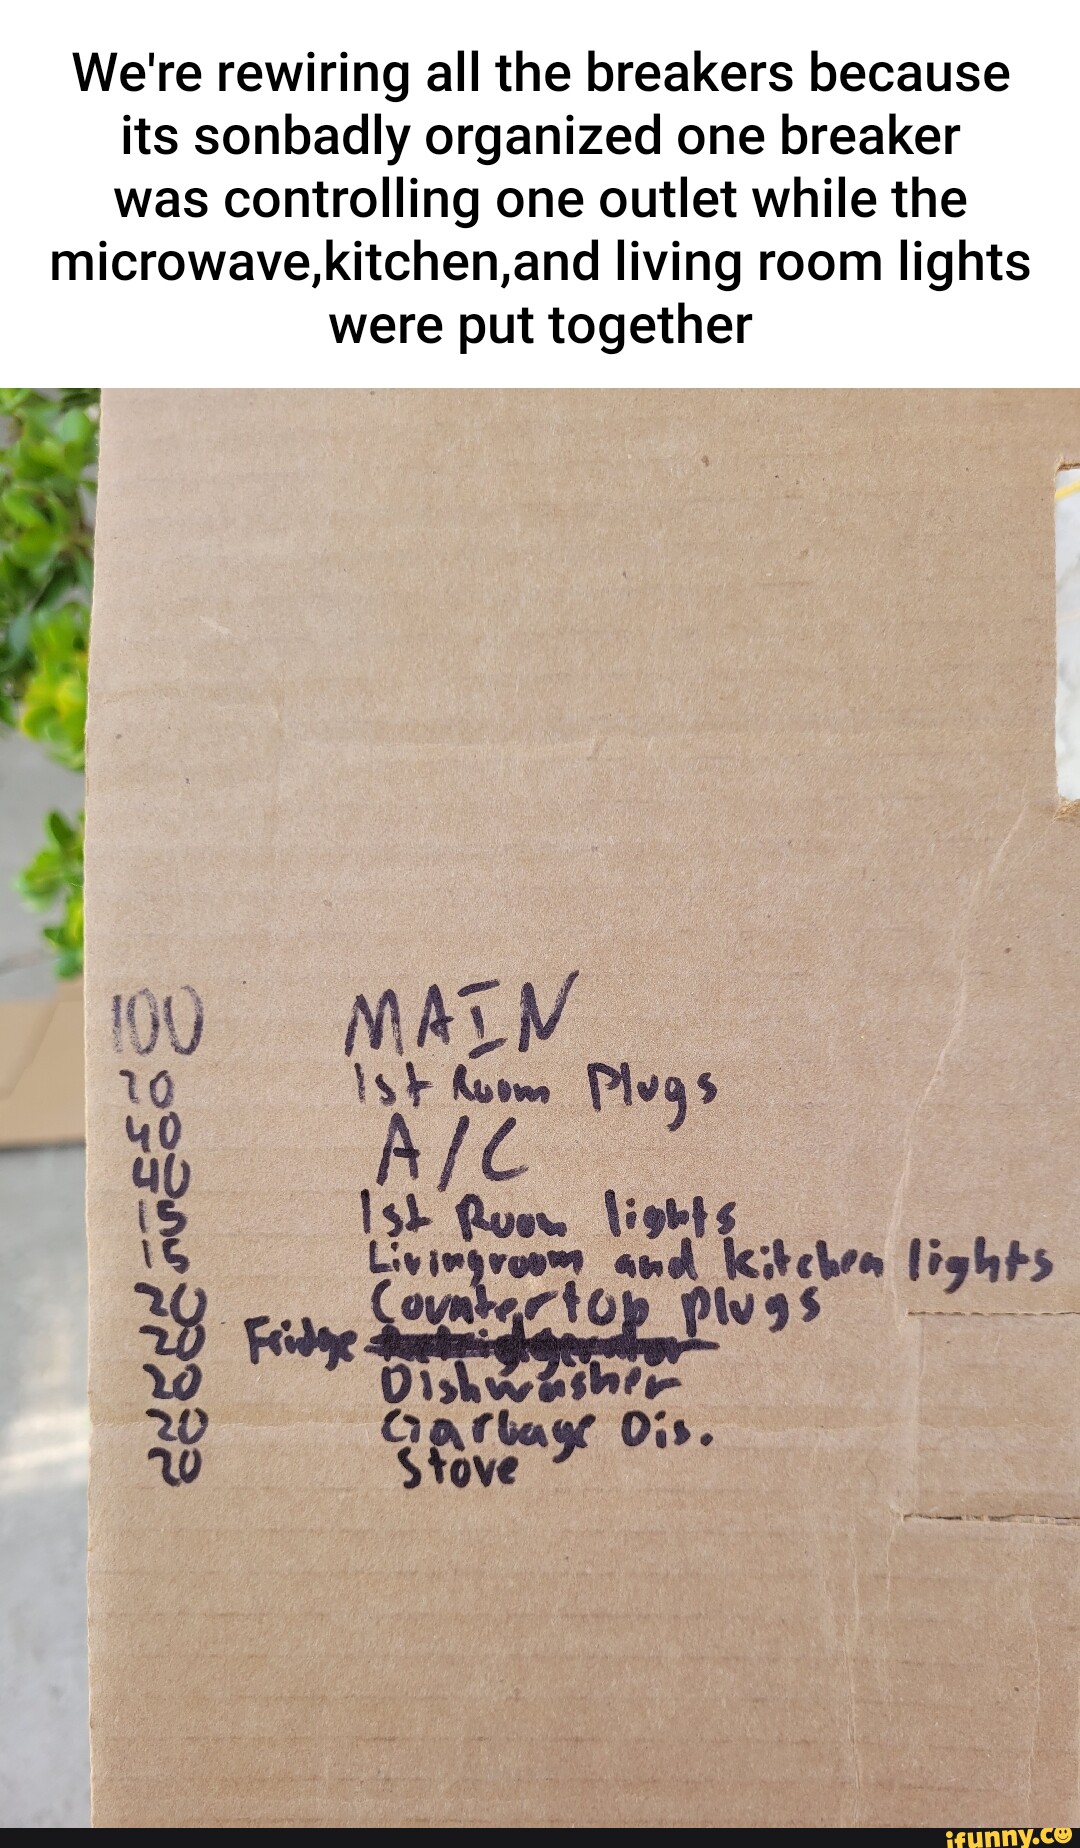 We're rewiring all the breakers because
its sonbadly organized one breaker
was controlling one outlet while the
microwave,kitchen,and living room lights
were put together
100 MAIN
20 1st Room Plugs
40 A/C
40
15 1st Room lights
15 Livingroom and kitchen lights
20 Countertop plugs
20 Fridge
20 Dishwasher
20 Garbage Dis.
20 Stove
ifunny.co